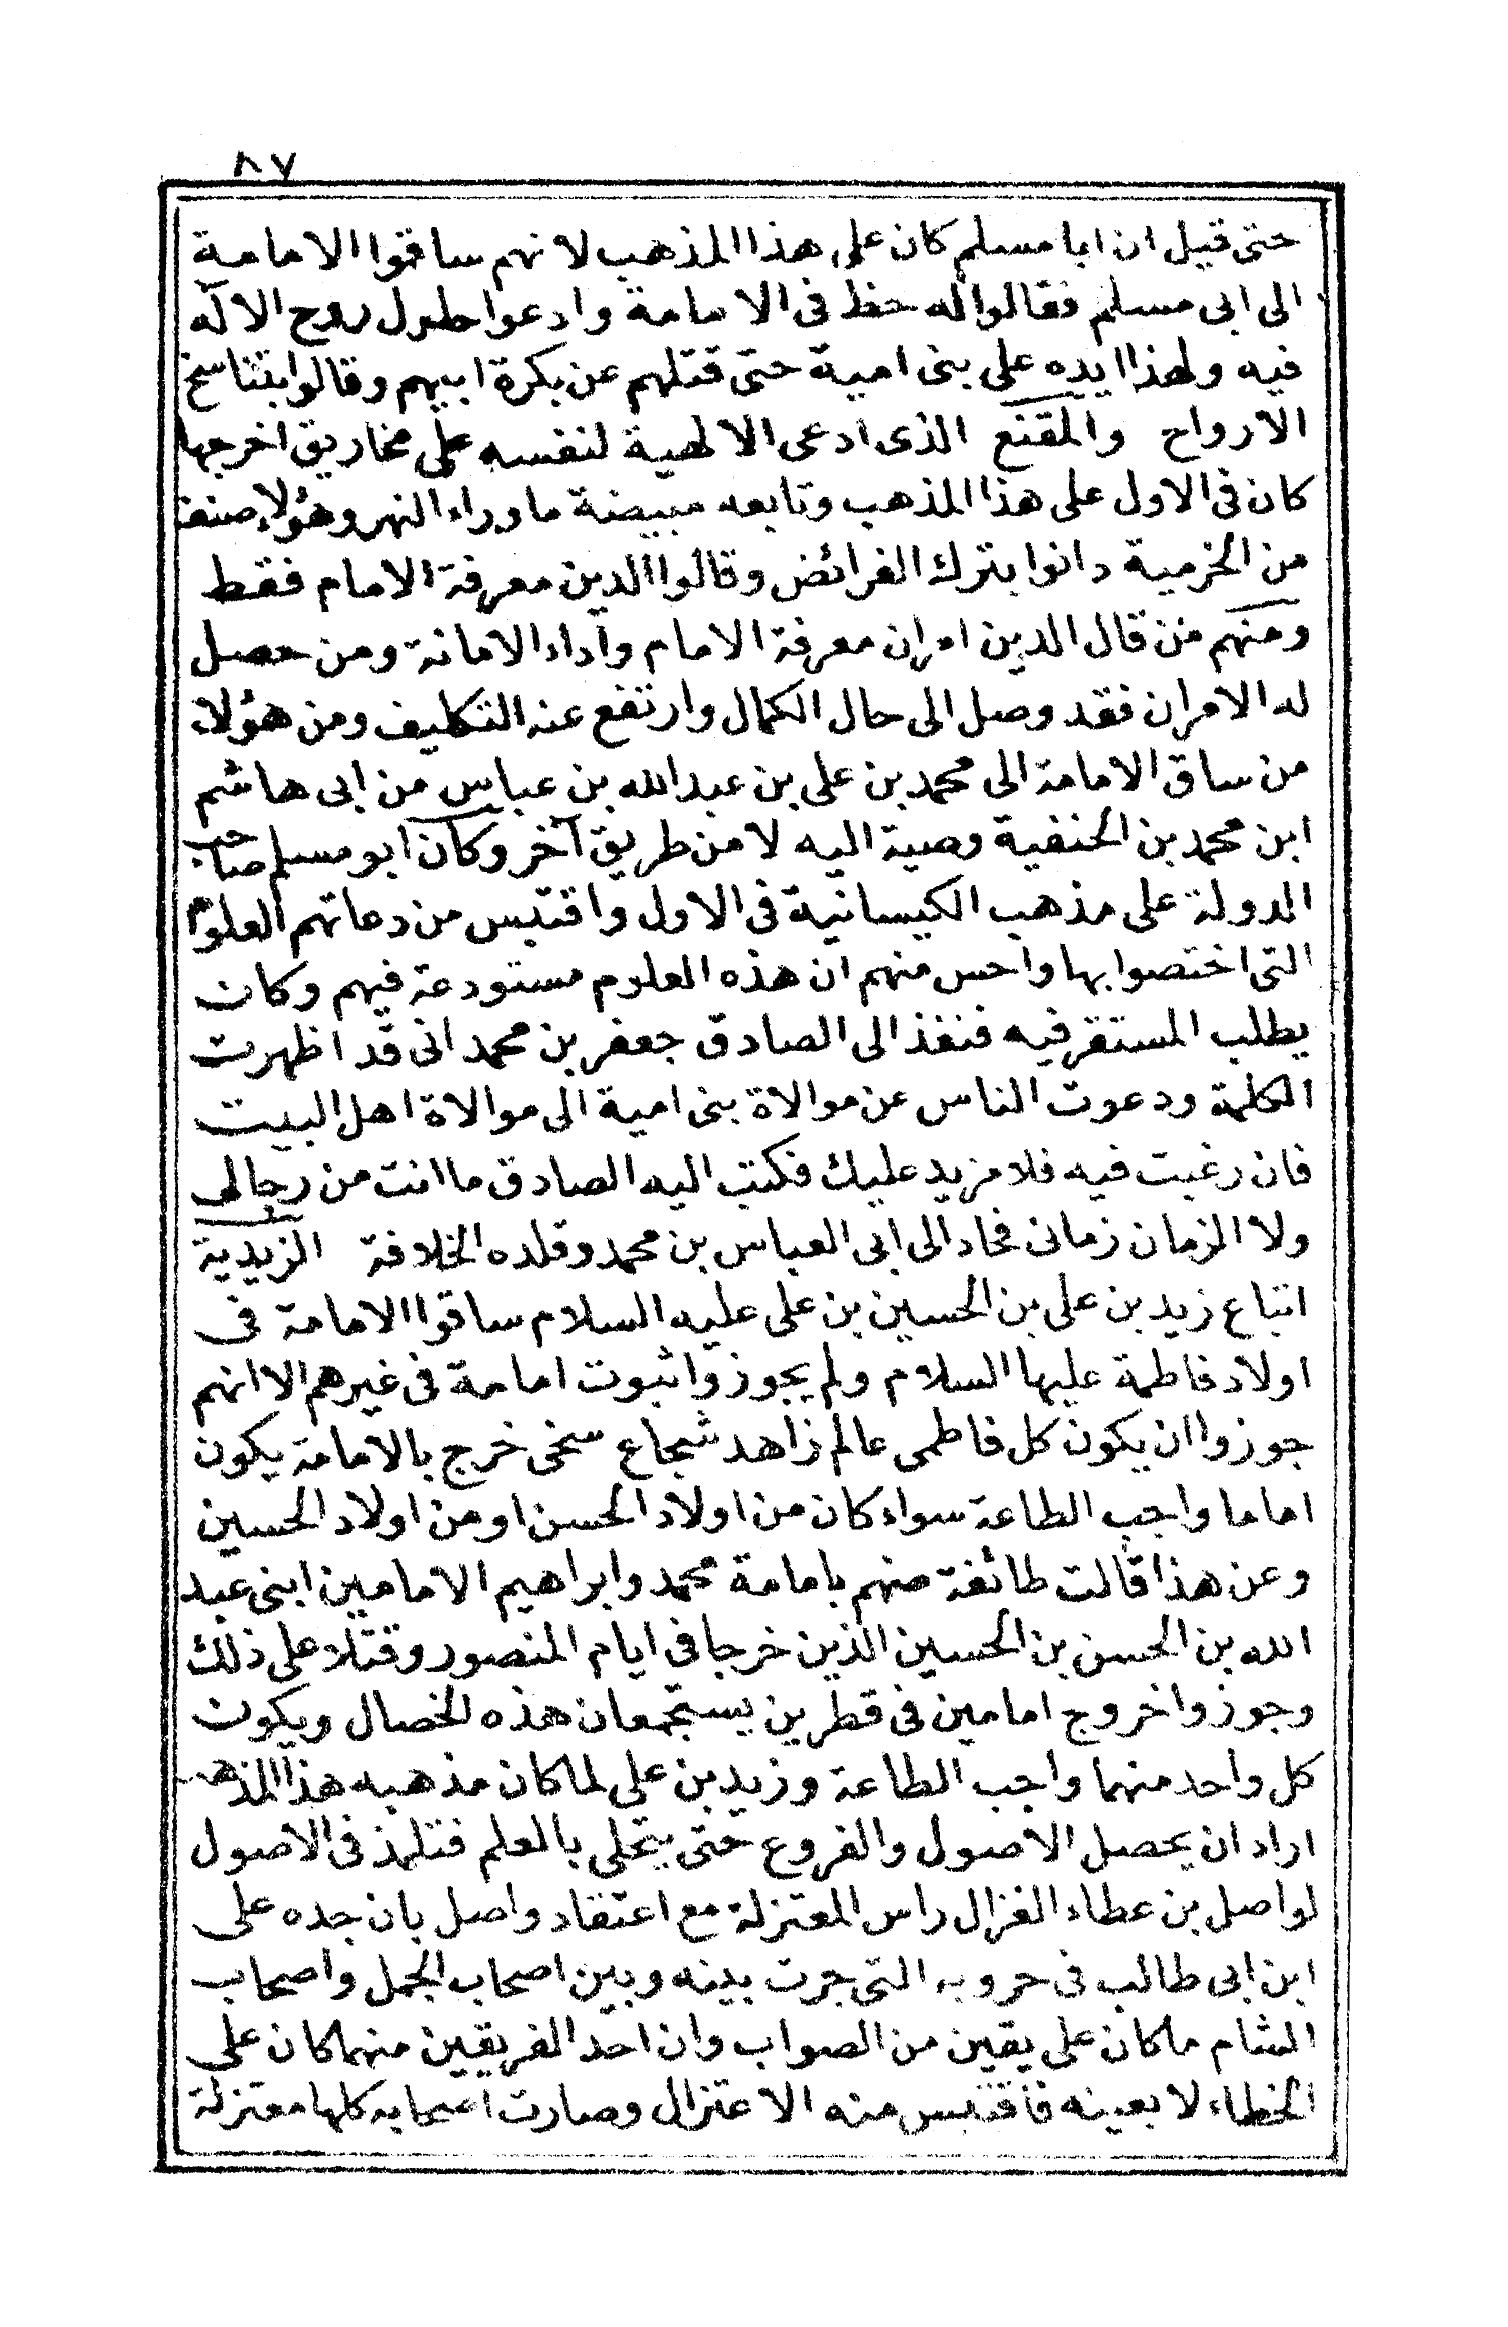 ٨٧
حتى قيل ان ابا مسلم كان على هذا المذهب لانهم ساقوا الامامة
الى ابى مسلم فقالوا له حظ فى الامامة وادعوا حلول روح الاله
فيه ولهذا ايده على بنى امية حتى قتلهم عن بكرة ابيهم وقالوا بتناسخ
الارواح والمقنع الذى ادعى الالهية لنفسه على مخاريق اخرجها
كان فى الاول على هذا المذهب وتابعه مبيضة ماوراء النهر وهؤلاء صنف
من الخرمية دانوا بترك الفرائض وقالوا الدين معرفة الامام فقط
ومنهم من قال الدين امران معرفة الامام واداء الامانة ومن حصل
له الامران فقد وصل الى حال الكمال وارتفع عنه التكليف ومن هؤلاء
من ساق الامامة الى محمد بن على بن عبد الله بن عباس من ابى هاشم
ابن محمد بن الحنفية وصية اليه لا من طريق آخر وكان ابو مسلم صاحب
الدولة على مذهب الكيسانية فى الاول واقتبس من دعاتهم العلوم
التى اختصوا بها واحس منهم ان هذه العلوم مستودعة فيهم وكان
يطلب المستقر فيه فنفذ الى الصادق جعفر بن محمد انى قد اظهرت
الكلمة ودعوت الناس عن موالاة بنى امية الى موالاة اهل البيت
فان رغبت فيه فلا مزيد عليك فكتب اليه الصادق ما انت من رجالى
ولا الزمان زمانى فحاد الى ابى العباس بن محمد وقلده الخلافة الزيدية
اتباع زيد بن على بن الحسين بن على عليه السلام ساقوا الامامة فى
اولاد فاطمة عليها السلام ولم يجوزوا ثبوت امامة فى غيرهم الا انهم
جوزوا ان يكون كل فاطمى عالم زاهد شجاع سخى خرج بالامامة يكون
اماما واجب الطاعة سواء كان من اولاد الحسن او من اولاد الحسين
وعن هذا قالت طائفة منهم بامامة محمد وابراهيم الامامين ابنى عبد
الله بن الحسن بن الحسين الذين خرجا فى ايام المنصور وقتلا على ذلك
وجوزوا خروج امامين فى قطرين يستجمعان هذه الخصال ويكون
كل واحد منهما واجب الطاعة وزيد بن على لما كان مذهبه هذا المذهب
اراد ان يحصل الاصول والفروع حتى يتحلى بالعلم فتلمذ فى الاصول
لواصل بن عطاء الغزال راس المعتزلة مع اعتقاد واصل بان جده على
ابن ابى طالب فى حروبه التى جرت بينه وبين اصحاب الجمل واصحاب
الشام ما كان على يقين من الصواب وان احد الفريقين منهما كان على
الخطاء لا بعينه فاقتبس منه الاعتزال وصارت اصحابه كلها معتزلة